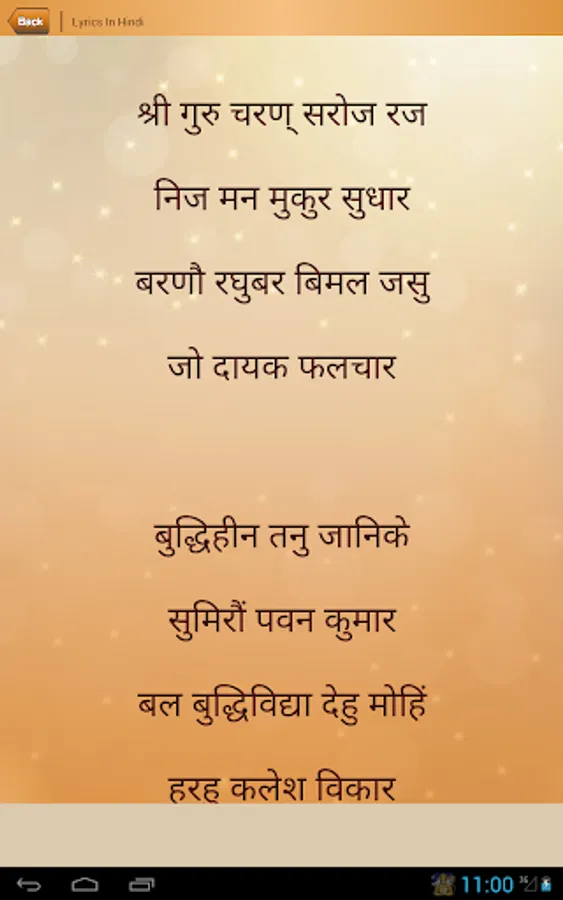 Back
Lyrics In Hindi
श्री गुरु चरण् सरोज रज
निज मन मुकुर सुधार
बरणौ रघुबर बिमल जसु
जो दायक फलचार
बुद्धिहीन तनु जानिके
सुमिरौं पवन कुमार
बल बुद्धिविद्या देहु मोहिं
हरह कलेश विकार
11:00